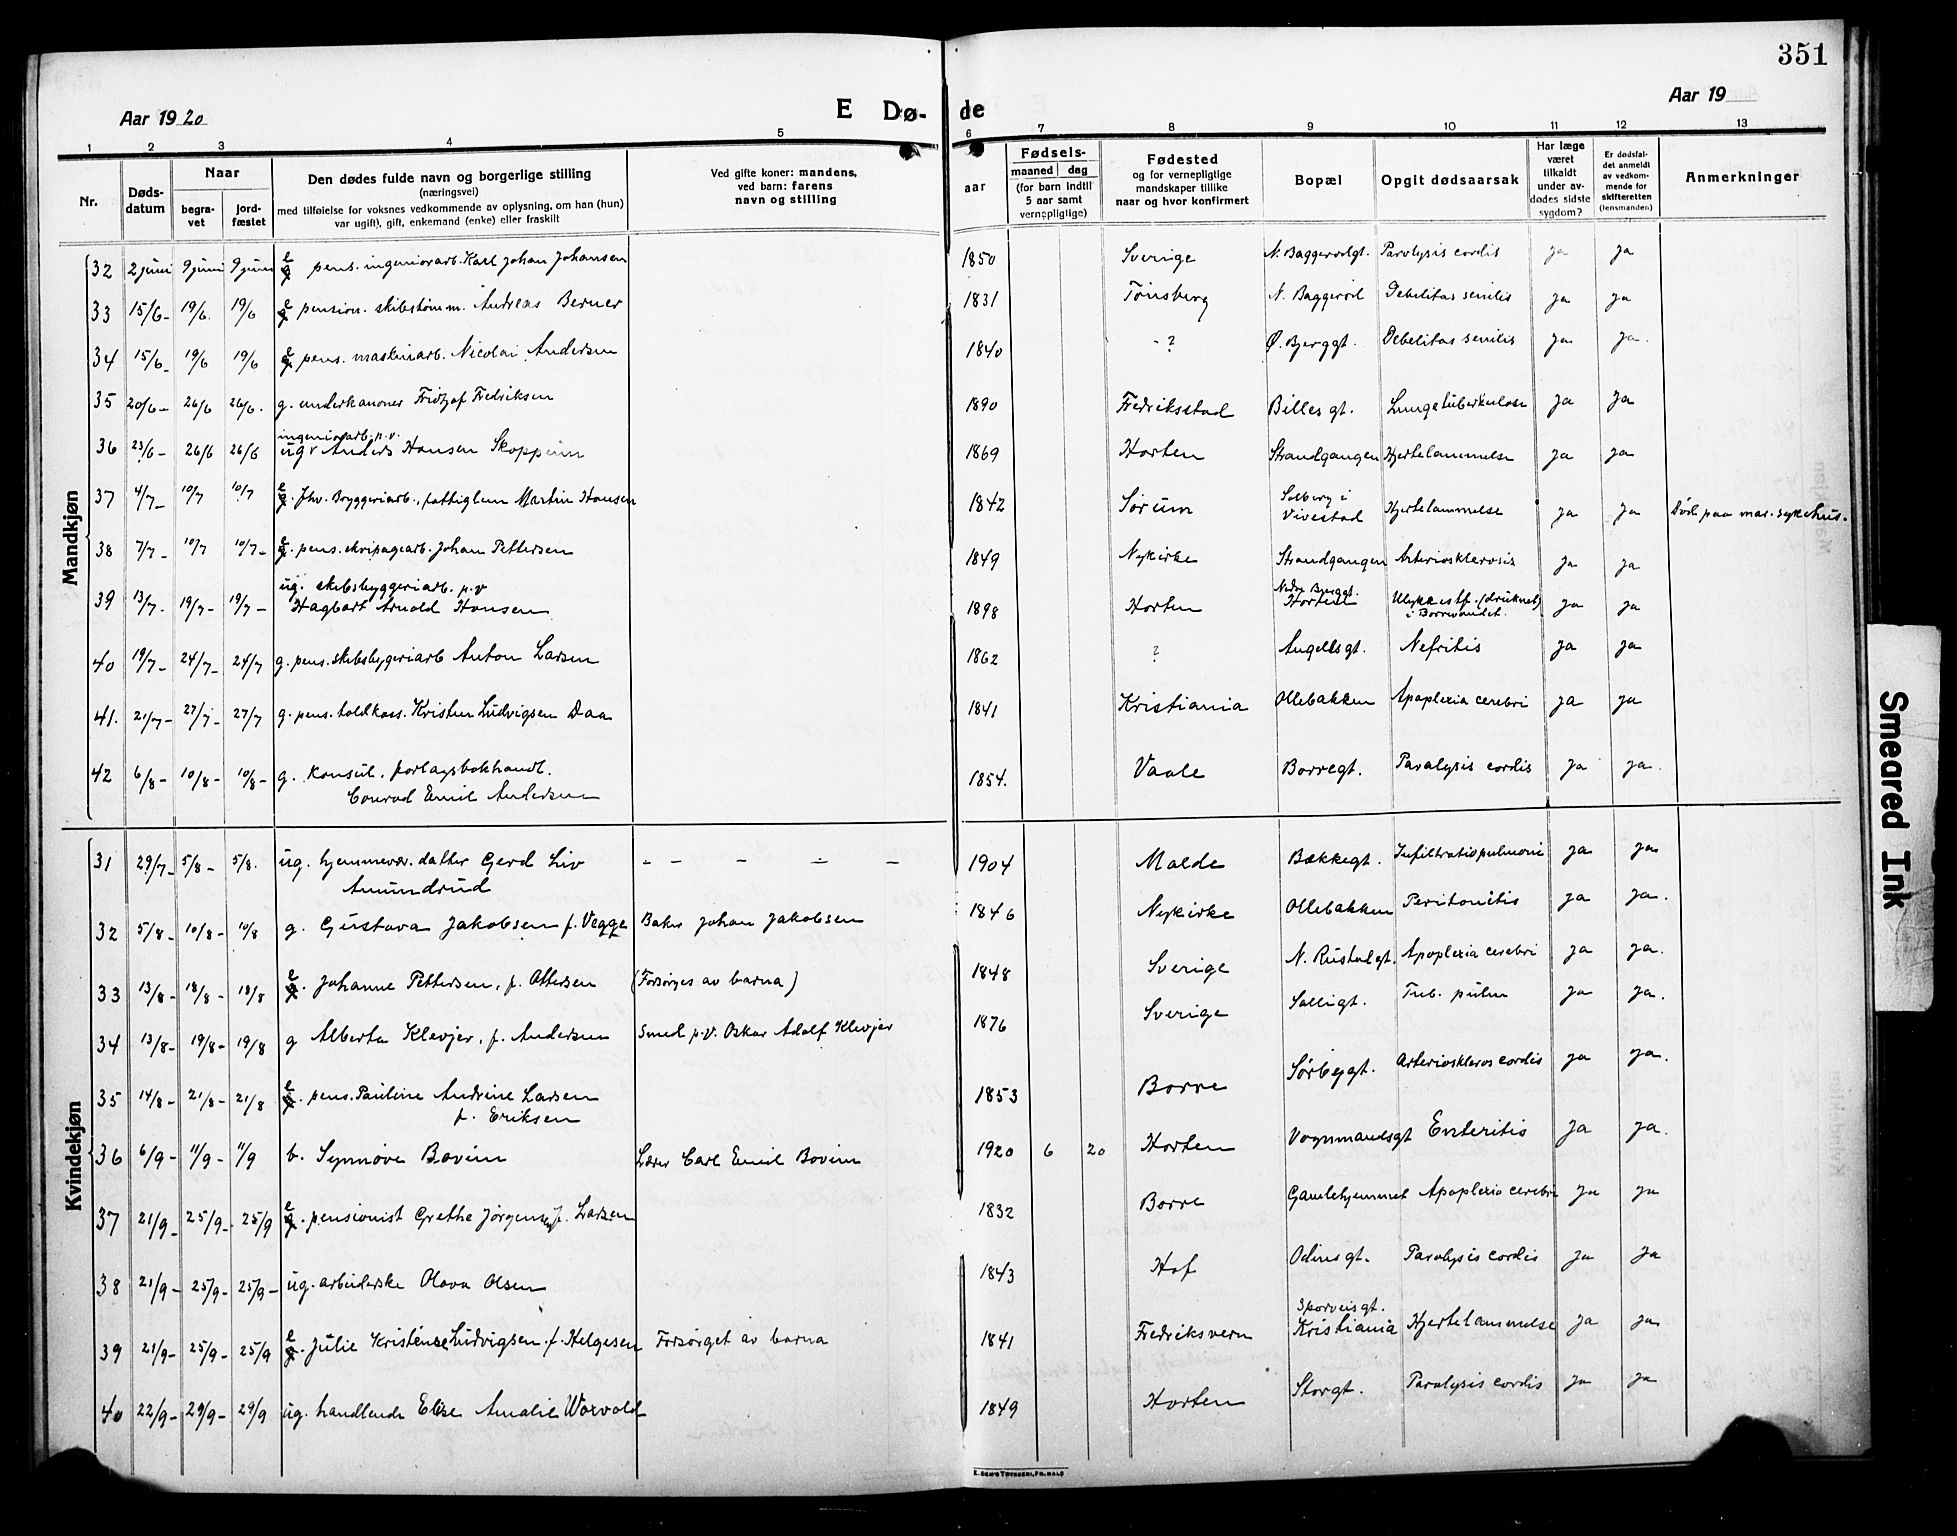 351
Aar 1920 E Dø- de Aar 19
1 2 3 4 5 6 7 8 9 10 11 12 13
Nr. Døds-datum Naar begra-vet jord-fæstet Den dødes fulde navn og borgerlige stilling (næringsvei) med tilføielse for voksnes vedkommende av oplysning, om han (hun) var ugift, gift, enkemand (enke) eller fraskilt Ved gifte koner: mandens, ved barn: farens navn og stilling aar Fødsels- maaned dag (for barn indtil 5 aar samt vernepligtige) Fødested og for vernepligtige mandskaper tillike naar og hvor konfirmert Bopæl Opgit dødsaarsak Har læge været tilkaldt under av-dødes sidste sygdom? Er dødsfal-det anmeldt av vedkom-mende for skifteretten (lensmanden) Anmerkninger
Mandkjøn
32 2 juni 9 juni 9 juni e pens. ingeniørarb. Karl Johan Johansen 1850 Sverige N. Baggerødgt. Paralysis cordis ja ja
33 15/6- 19/6. 19/6 e pension. skibstømm. Andreas Berner 1831 Tønsberg N. Baggerød Debelitas senilis ja ja
34 15/6- 19/6 19/6 e pens. maskinarb. Nicolai Andersen 1840 - ? Ø. Bjerggt. Debelitas senilis ja ja.
35 20/6- 26/6 26/6. g. underkanoner Fridtjof Fredriksen 1890 Fredriksstad Billes gt. Lungetuberkulose ja ja
36 23/6- 26/6 26/6 ingeniørarb. p.v. ug. Anders Hansen Skoppum 1869 Horten Strandgangen Hjertelammelse ja ja
37 4/7- 10/7 10/7 e. fhv. Bryggeriarb., fattiglem Martin Hansen 1842 Sørum Solberg i Vivestad Hjertelammelse ja ja Død paa mar. sykehus.
38 7/7- 10/7 10/7- e. pens. ekvipagearb. Johan Pettersen 1849 Nykirke Strandgangen Arteriosklerosis ja ja
39 13/7. 19/7- 19/7- ug. skibsbyggeriarb. p.v Hagbart Arnold Hansen 1898 Horten Nedre Bjerggt. Horten Ulykkestf. (druknet) i Borrevandet. ja ja
40 19/7- 24/7- 24/7 g. pens. skibsbyggeriarb Anton Larsen 1862 ? Angells gt. Nefritis ja ja
41. 21/7- 27/7- 27/7 g. pens. toldkass. Kristen Ludvigsen Daa 1841 Kristiania Ollebakken Apoplexia cerebri ja ja
42 6/8- 10/8- 10/8- g. konsul, forlagsbokhandl. 1854. Vaale Borregt. Paralysis cordis ja ja.
Conrad Emil Andersen
Kvindekjøn
31 29/7- 5/8- 5/8. ug. hjemmevær. datter Gerd Liv - - - - - 1904 Molde Bakkegt. Infiltratio pulmoni ja ja
Amundrud
32 5/8- 10/8- 10/8 g. Gustava Jakobsen f. Vegge Baker Johan Jakobsen 1846 Nykirke Ollebakken Peritonitis ja ja.
33 13/8- 18/8- 18/8 e. Johanne Pettersen, f. Ottersen (Forsørges av barna) 1848 Sverige N. Rustadgt. Apoplexia cerebri ja ja.
34 13/8- 19/8- 19/8 g Alberta Klevjer, f. Andersen Smed p.v. Oskar Adolf Klevjer 1876 Sverige Solligt. Tub. pulm ja ja.
35 14/8- 21/8- 21/8 e. pens. Pauline Andrine Larsen 1853 Borre Sørbygt. Arterioskleros cordis ja ja.
f. Eriksen
36 6/9- 11/9- 11/9 b. Synnøve Bovim Lærer Carl Emil Bovim 1920 6 20 Horten Vognmandsgt Enteritis ja ja.
37 21/9- 25/9-. 25/9 e. pensionist Grethe Jørgensen f. Larsen 1832 Borre Gamlehjemmet Apoplexia cerebri ja ja
38 21/9- 25/9- 25/9- ug. arbeiderske Olava Olsen 1843 Hof Odins gt. Paralysis cordis ja ja
39 21/9- 25/9- 25/9 e. Julie Kristense Ludvigsen f. Helgesen Forsørget av barna 1841 Fredriksvern Sporveisgt. Kristiania Hjertelammelse ja ja
40 22/9- 29/9- 29/9 ug. handlende Elise Amalie Worvold 1849 Horten Storgt. Paralysis cordis ja ja
Smeared Ink